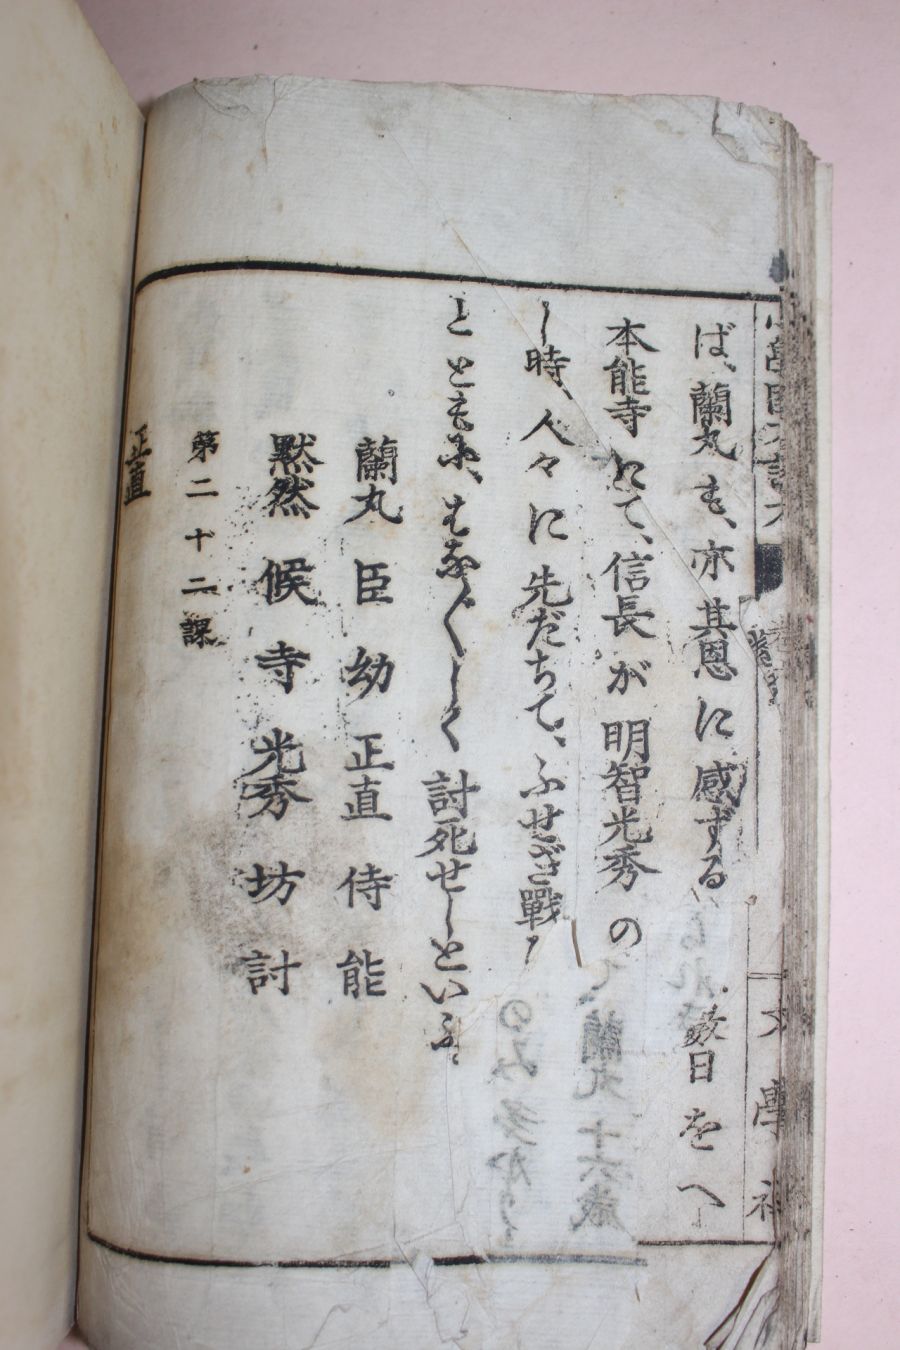 ば、蘭丸も、亦其恩に感ずる 数日をへ
本能寺にて、信長が明智光秀の て、蘭丸十六歳
し時、人々に先だちて、ふせぎ戰 のみ多かり
とともに、はなばなしく討死せしといふ。
蘭丸 臣 幼 正直 侍 能
黙然 候 寺 光秀 坊 討
第二十二課
正直
文學社